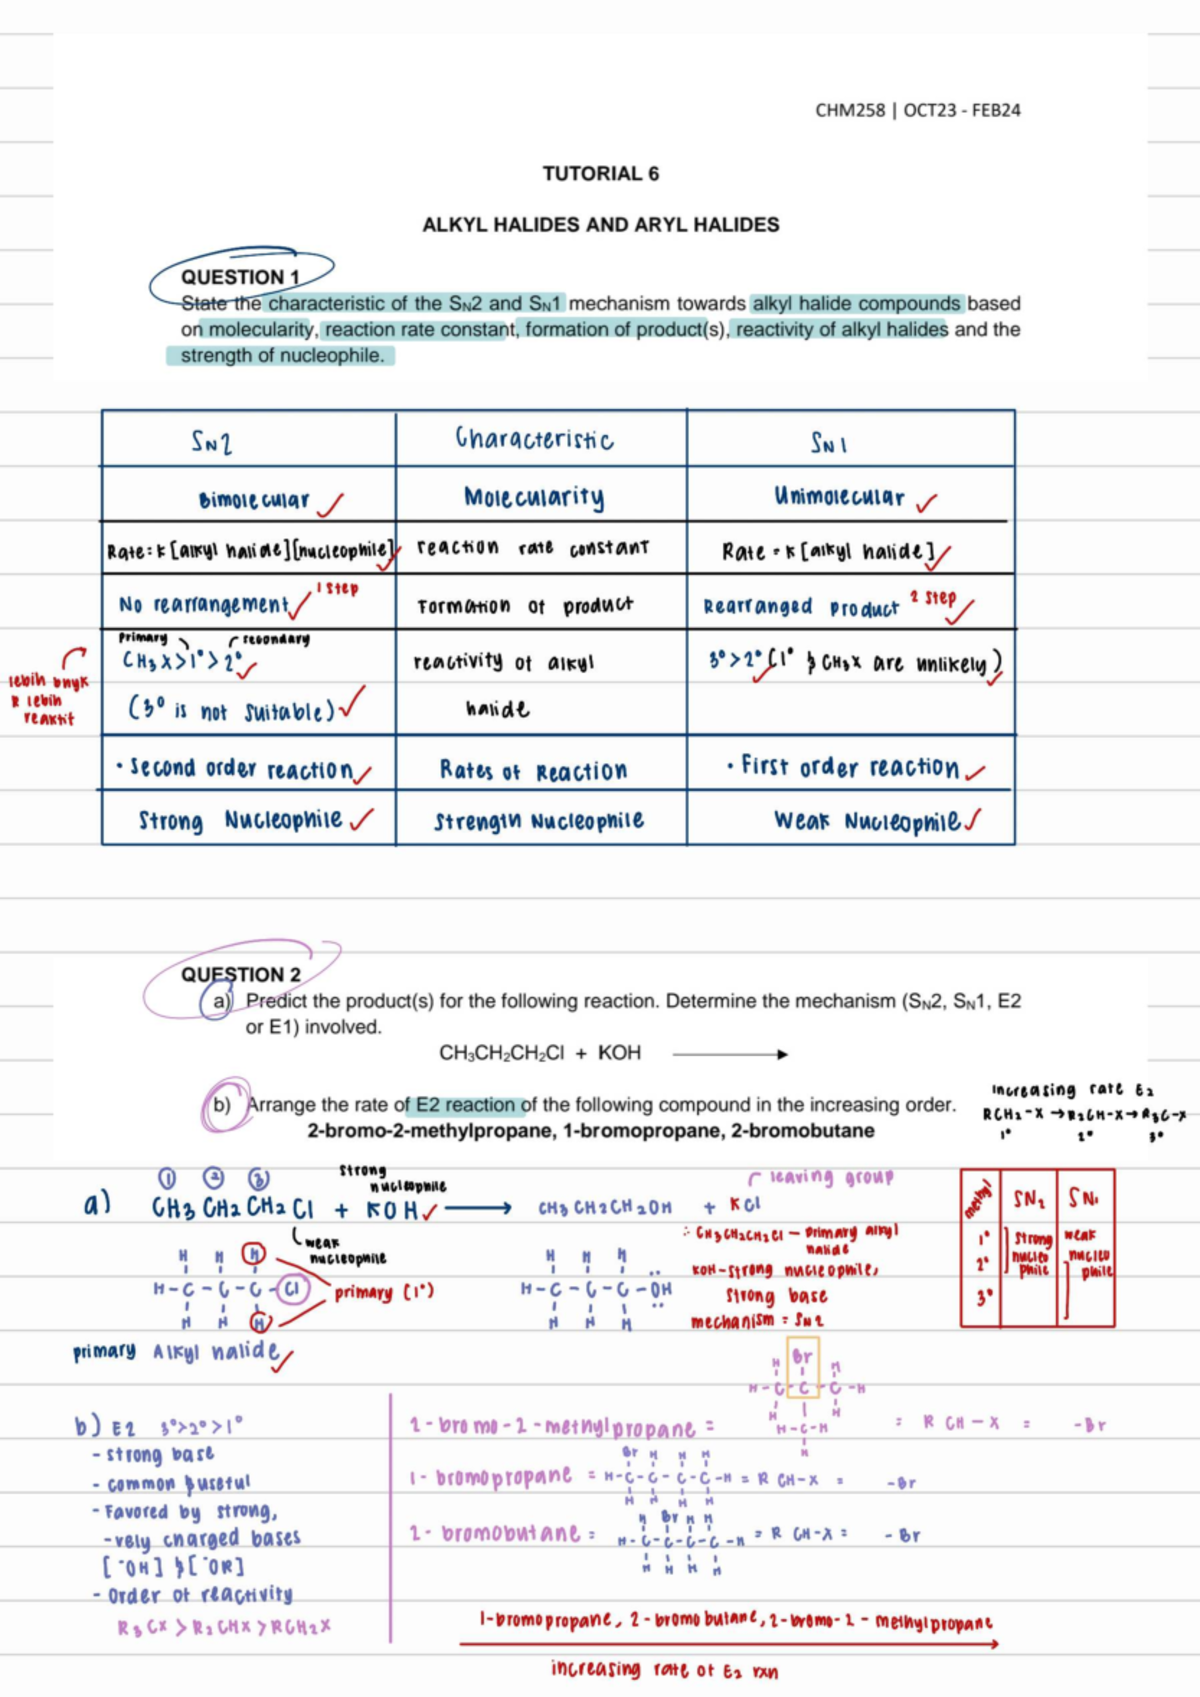 CHM258 | OCT23 - FEB24
TUTORIAL 6
ALKYL HALIDES AND ARYL HALIDES
QUESTION 1
State the characteristic of the SN2 and SN1 mechanism towards alkyl halide compounds based
on molecularity, reaction rate constant, formation of product(s), reactivity of alkyl halides and the
strength of nucleophile.
SN2 Characteristic SN1
Bimolecular ✓ Molecularity Unimolecular ✓
Rate = k [alkyl halide][nucleophile] ✓ reaction rate constant Rate = k [alkyl halide] ✓
No rearrangement ✓ 1 step Formation of product Rearranged product 2 step ✓
primary secondary
CH3X > 1° > 2° ✓ reactivity of alkyl 3° > 2° (1° & CH3X are unlikely) ✓
lebih bnyk
R lebih
reaktif
(3° is not suitable) ✓ halide
• Second order reaction ✓ Rates of Reaction • First order reaction ✓
Strong Nucleophile ✓ Strength Nucleophile Weak Nucleophile ✓
QUESTION 2
a) Predict the product(s) for the following reaction. Determine the mechanism (SN2, SN1, E2
or E1) involved.
CH3CH2CH2Cl + KOH
increasing rate E2
b) Arrange the rate of E2 reaction of the following compound in the increasing order.
RCH2-X → R2CH-X → R3C-X
1° 2° 3°
2-bromo-2-methylpropane, 1-bromopropane, 2-bromobutane
① ② ③ strong nucleophile leaving group
a) CH3 CH2 CH2 Cl + KOH ✓ → CH3 CH2 CH2 OH + KCl
weak nucleophile
∴ CH3CH2CH2Cl – primary alkyl halide
H H H
H-C-C-C-Cl primary (1°)
H H H
H H H
H-C-C-C-OH
H H H
KOH-strong nucleophile,
strong base
mechanism = SN2
methyl SN2 SN1
1° strong nucleo phile weak nucleo phile
2°
3°
primary Alkyl halide ✓
b) E2 3°>2°>1°
- strong base
- common & useful
- Favored by strong,
-vely charged bases
[⁻OH] & [⁻OR]
- Order of reactivity
R3CX > R2CHX > RCH2X
H Br H
H-C-C-C-H
H H
H-C-H
H
2-bromo-2-methylpropane = = R CH-X = -Br
Br H H H
1-bromopropane = H-C-C-C-C-H = R CH-X = -Br
H H H H
H Br H H
2-bromobutane = H-C-C-C-C-H = R CH-X = -Br
H H H H
1-bromopropane, 2-bromobutane, 2-bromo-2-methylpropane
increasing rate of E2 rxn